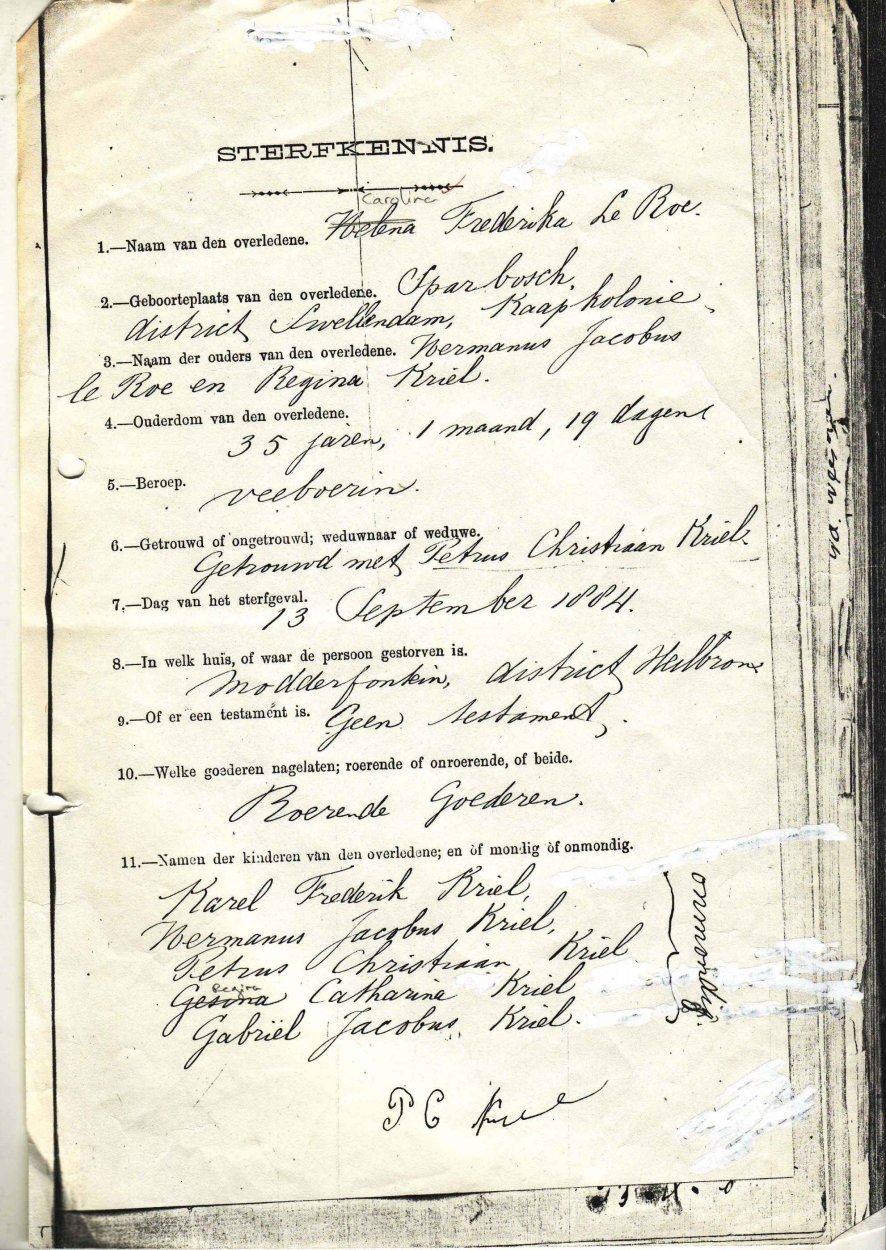 STERFKENNIS.
Carolina
1.—Naam van den overledene. Helena Frederika Le Roe.
2.—Geboorteplaats van den overledene. Sparbosch,
district Swellendam, Kaapkolonie
3.—Naam der ouders van den overledene. Hermanus Jacobus
le Roe en Regina Kriel.
4.—Ouderdom van den overledene.
35 jaren, 1 maand, 19 dagen
5.—Beroep.
veeboerin.
6.—Getrouwd of ongetrouwd; weduwnaar of weduwe.
Getrouwd met Petrus Christiaan Kriel.
7.—Dag van het sterfgeval.
13 September 1884.
8.—In welk huis, of waar de persoon gestorven is.
Modderfontein, district Heilbron
9.—Of er een testament is. Geen testament.
10.—Welke goederen nagelaten; roerende of onroerende, of beide.
Roerende Goederen.
11.—Namen der kinderen van den overledene; en òf mondig òf onmondig.
Karel Frederik Kriel,
Hermanus Jacobus Kriel,
Petrus Christiaan Kriel
Regina
Gesina Catharina Kriel
Gabriël Jacobus Kriel.
onmondig.
P C Kriel